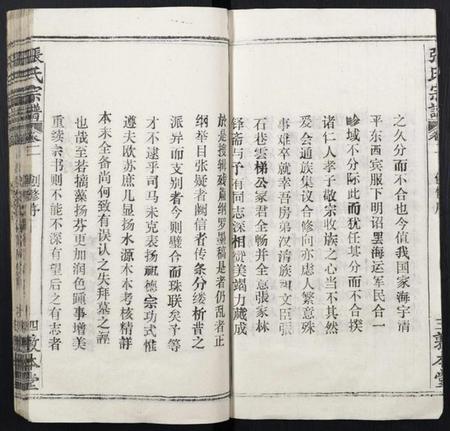 張氏宗譜
之久分而不合也今值我国家海宇清
平东西宾服下明诏罢海运军民合一
畛域不分际此而犹任其分而不合揆
诸仁人孝子敬宗收族之心当不其然
爰会通族集议合修向亦虑人繁意殊
事难卒就幸吾房弟汉清族叔文臣張
石巷雲梯公家君全畅并全意張家林
铎斋与予有同志深相赞美竭力蒇成
於是搜辑残编纲罗墨稿是者仍乱者正
纲举目张疑者阙信者传条分缕析昔之
派异而支别者今则璧合而珠联矣予等
才不逮乎司马未克表扬祖德宗功式惟
遵夫欧苏庶几显扬水源木本考核精詳
本末全备尚何致有误认之失拜墓之誣
也哉至若摛藻扬芬更加润色踵事增美
重续宗书则不能不深有望后之有志者
張氏宗譜
卷一
創修序
四
敦本堂
三
敦本堂